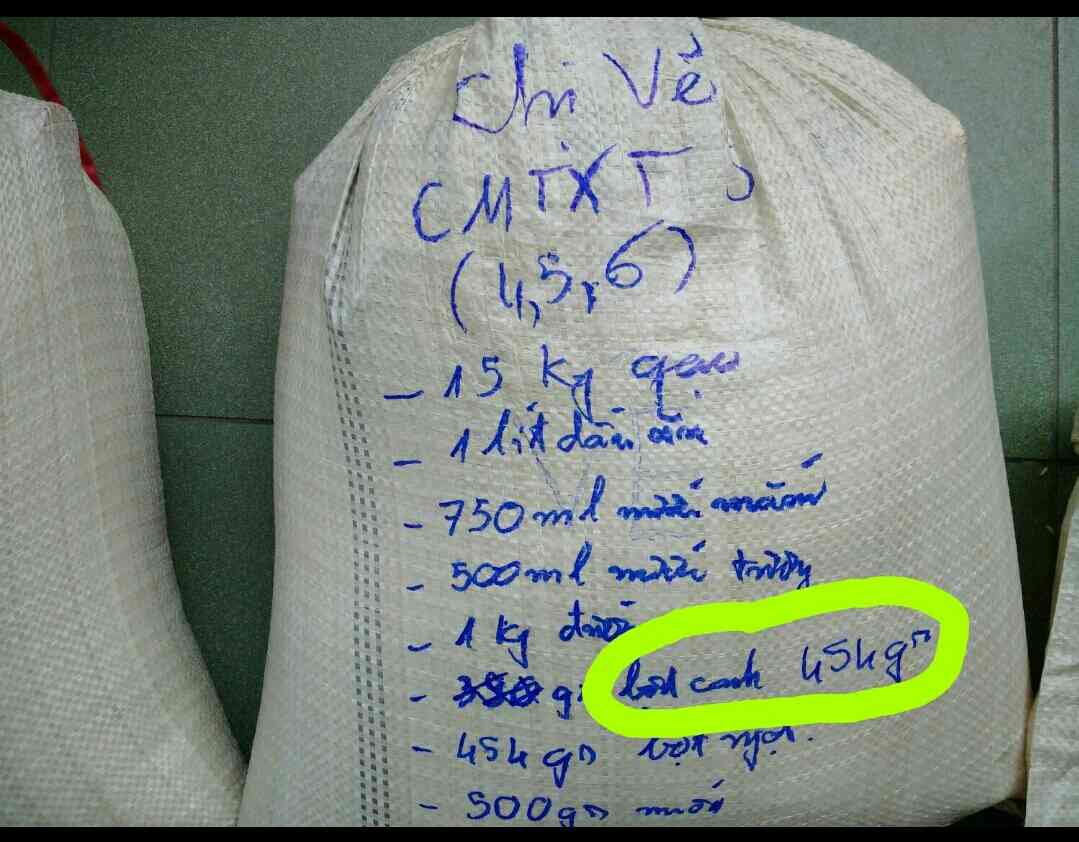 Chi Vẻ
CMTXT
(4,5,6)
- 15 kg gạo
- 1 lít dầu ăn
- 750ml nước mắm
- 500ml nước tương
- 1 kg đường
- 350 gr bột canh 454gr
- 454gr bột ngọt.
- 500gr muối